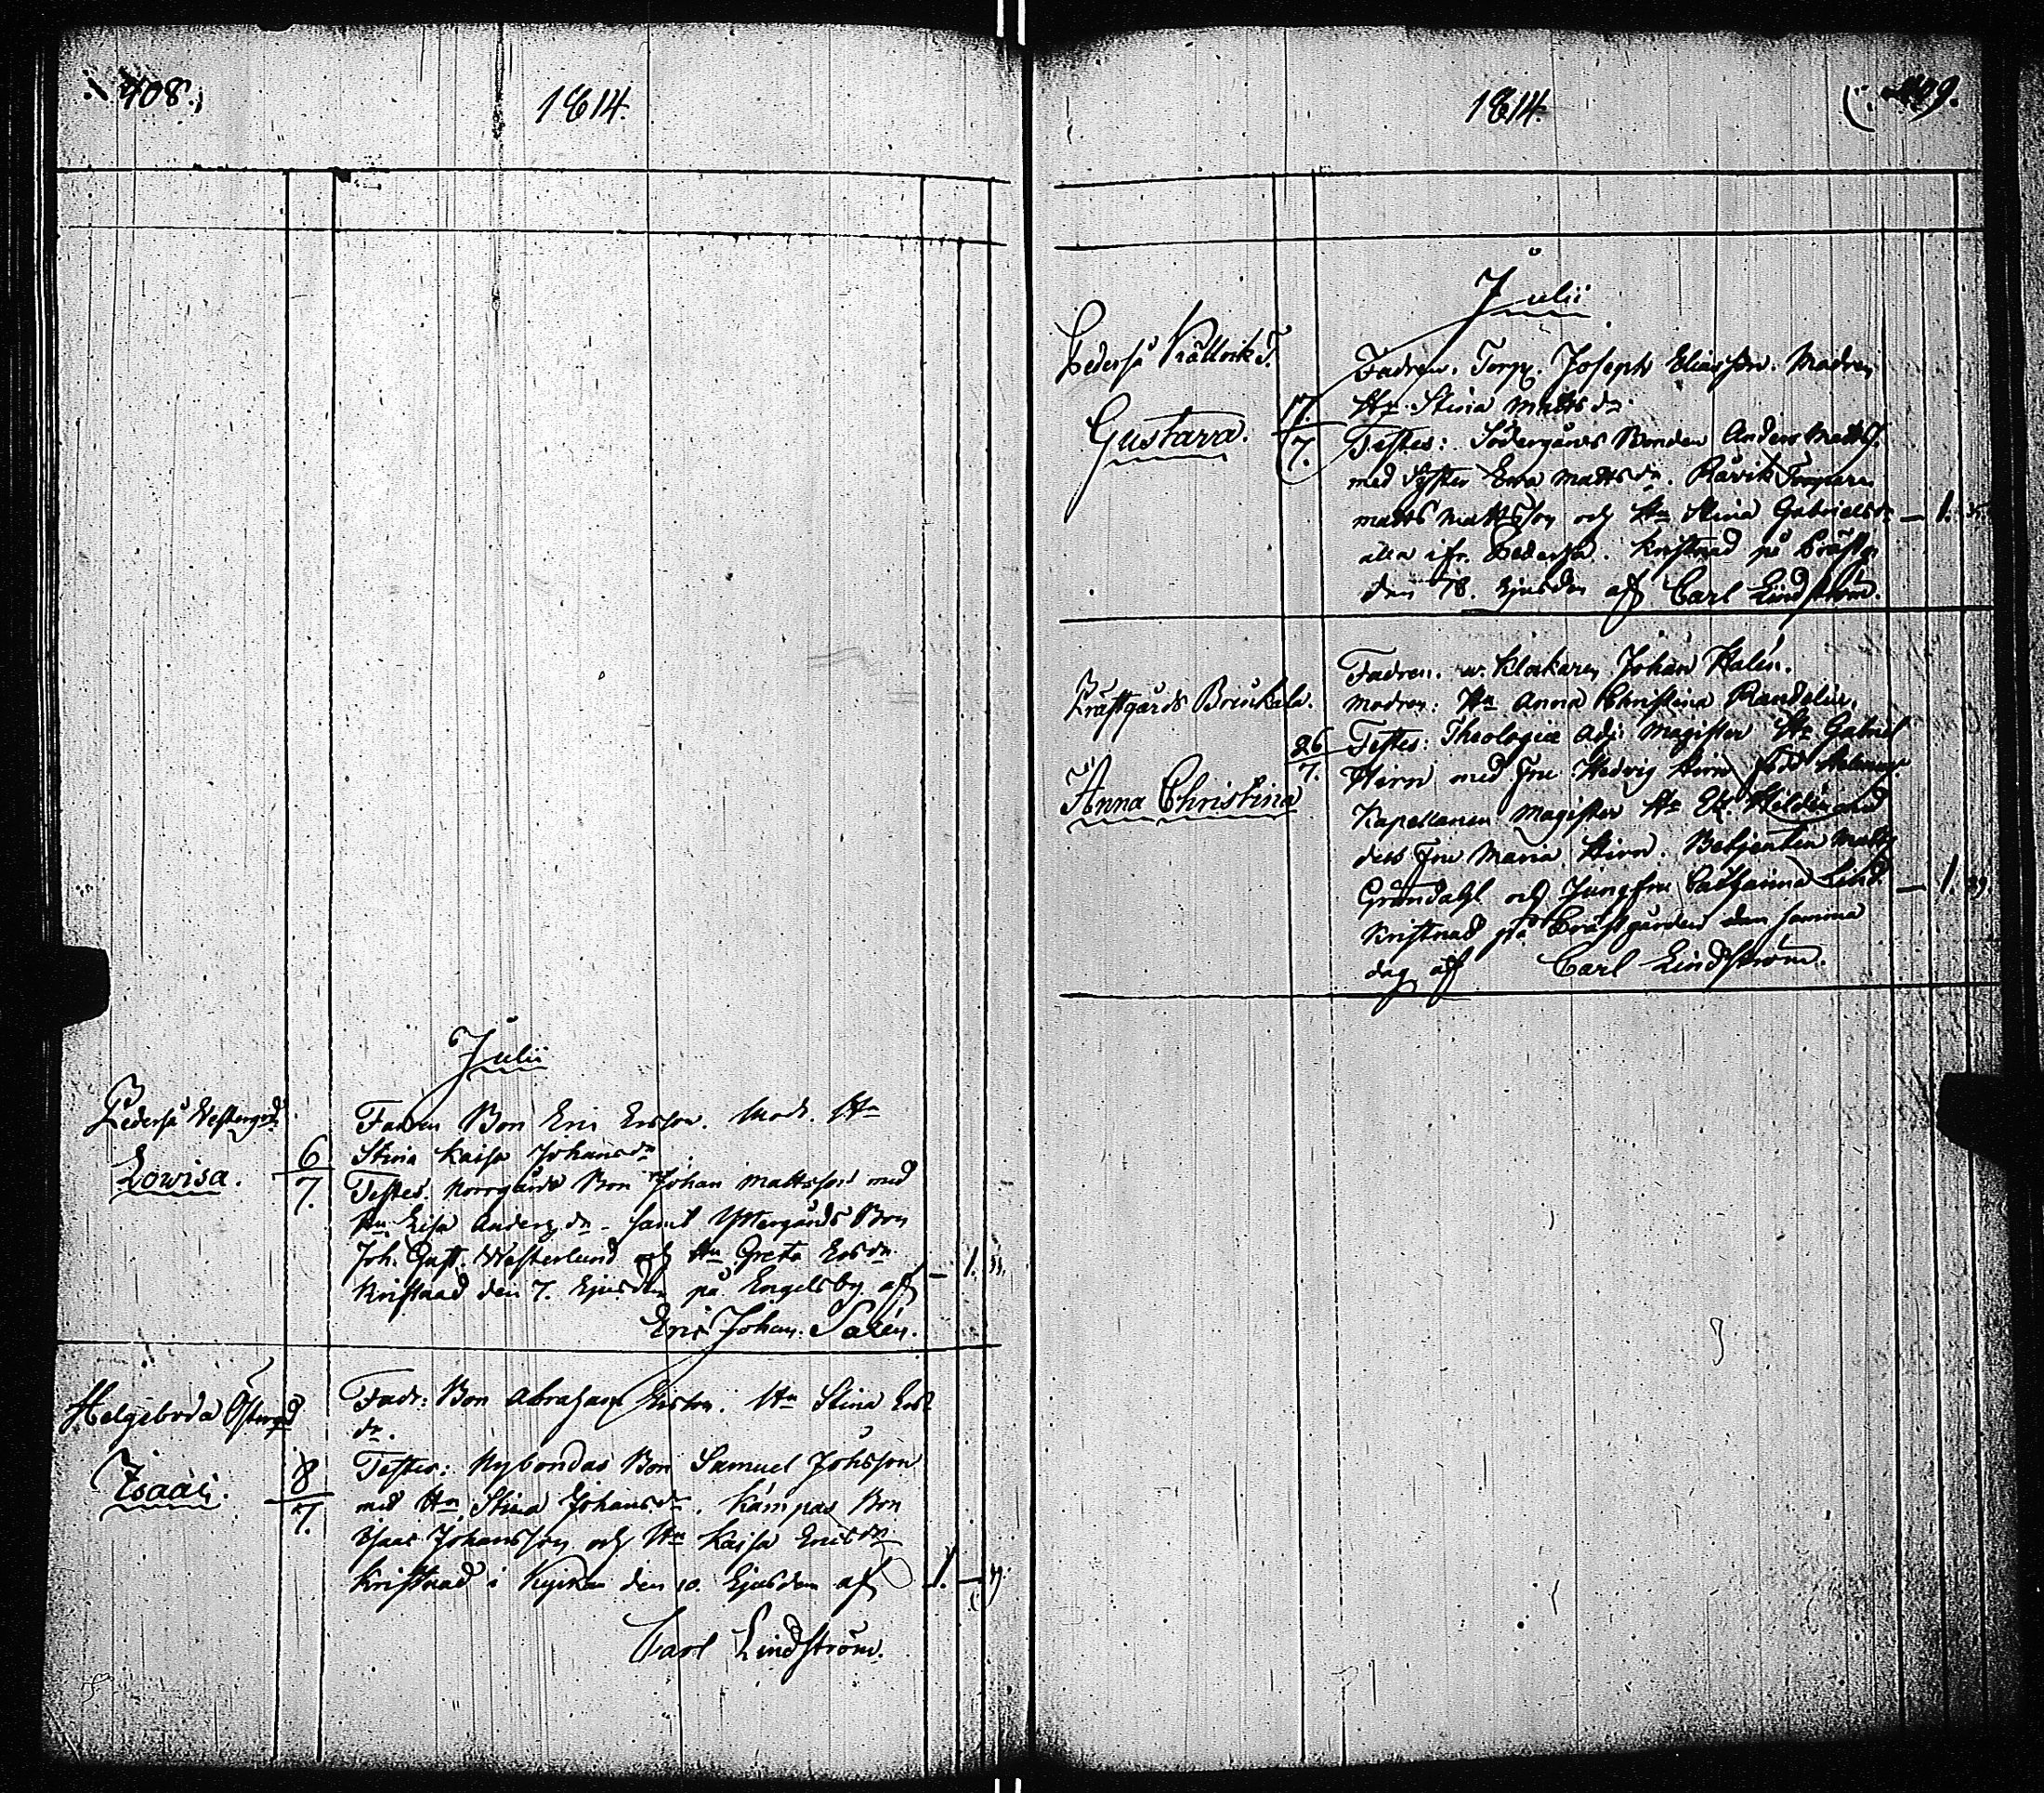 408.
1814.
Julii
Pederså Westergrd
Lowisa.
6
7.
Fadren Bon Eric Ersson. Modr. Hu
Stina Kaisa Johansdr
Testes. Norrgårds Bon Johan Mattsson med
Hu Lisa Andersdr. samt Yttergårds Bon
Joh. Gust. Westerlund och Hu Greta Ersdr
Kristnad den 7. Ejusdem på Engelsby af
Eric Johan Salén.
— 1. 33.
Helgeboda Östergrd
Isaac.
8
7.
Fadr: Bon Abraham Ersson. Hu Stina Ers
dr.
Testes: Nybondas Bon Samuel Johsson
med Hu Stina Johansdr. Kämpas Bon
Isaac Johansson och Hu Kajsa Ericsdr
Kristnad i Kyrkan den 10. Ejusdem af
Carl Lindström.
1. —
1814.
409.
Julii
Pederså Källvik T.
Gustava.
17.
7.
Fadren. Torp. Joseph Eliasson. Modren
Hu Stina Mattsdr
Testes: Södergårds Bonden Anders Matts.
med Syster Ewa Mattsdr. Rävik Torparen
Matts Mattsson och Hu Stina Gabrielsdr
alla ifr. Pederså. Kristnad på Prästg.
den 18. Ejusdem af Carl Lindström.
— 1.
Prästgårds Brinkala.
Anna Christina
26
7.
Fadren. v. Klockaren Johan Halén.
Modren: Hu Anna Christina Randelin.
Testes: Theologiæ Adj. Magister Hr Gabriel
Hirn med Fru Hedvig Hirn född
Kapellanen Magister Hr med
dess Fru Maria Hirn. Betjenten Matts
Gröndahl och Jungfru Catharina Lind.
Kristnad på Prästgården den samma
dag af Carl Lindström.
— 1. 29.